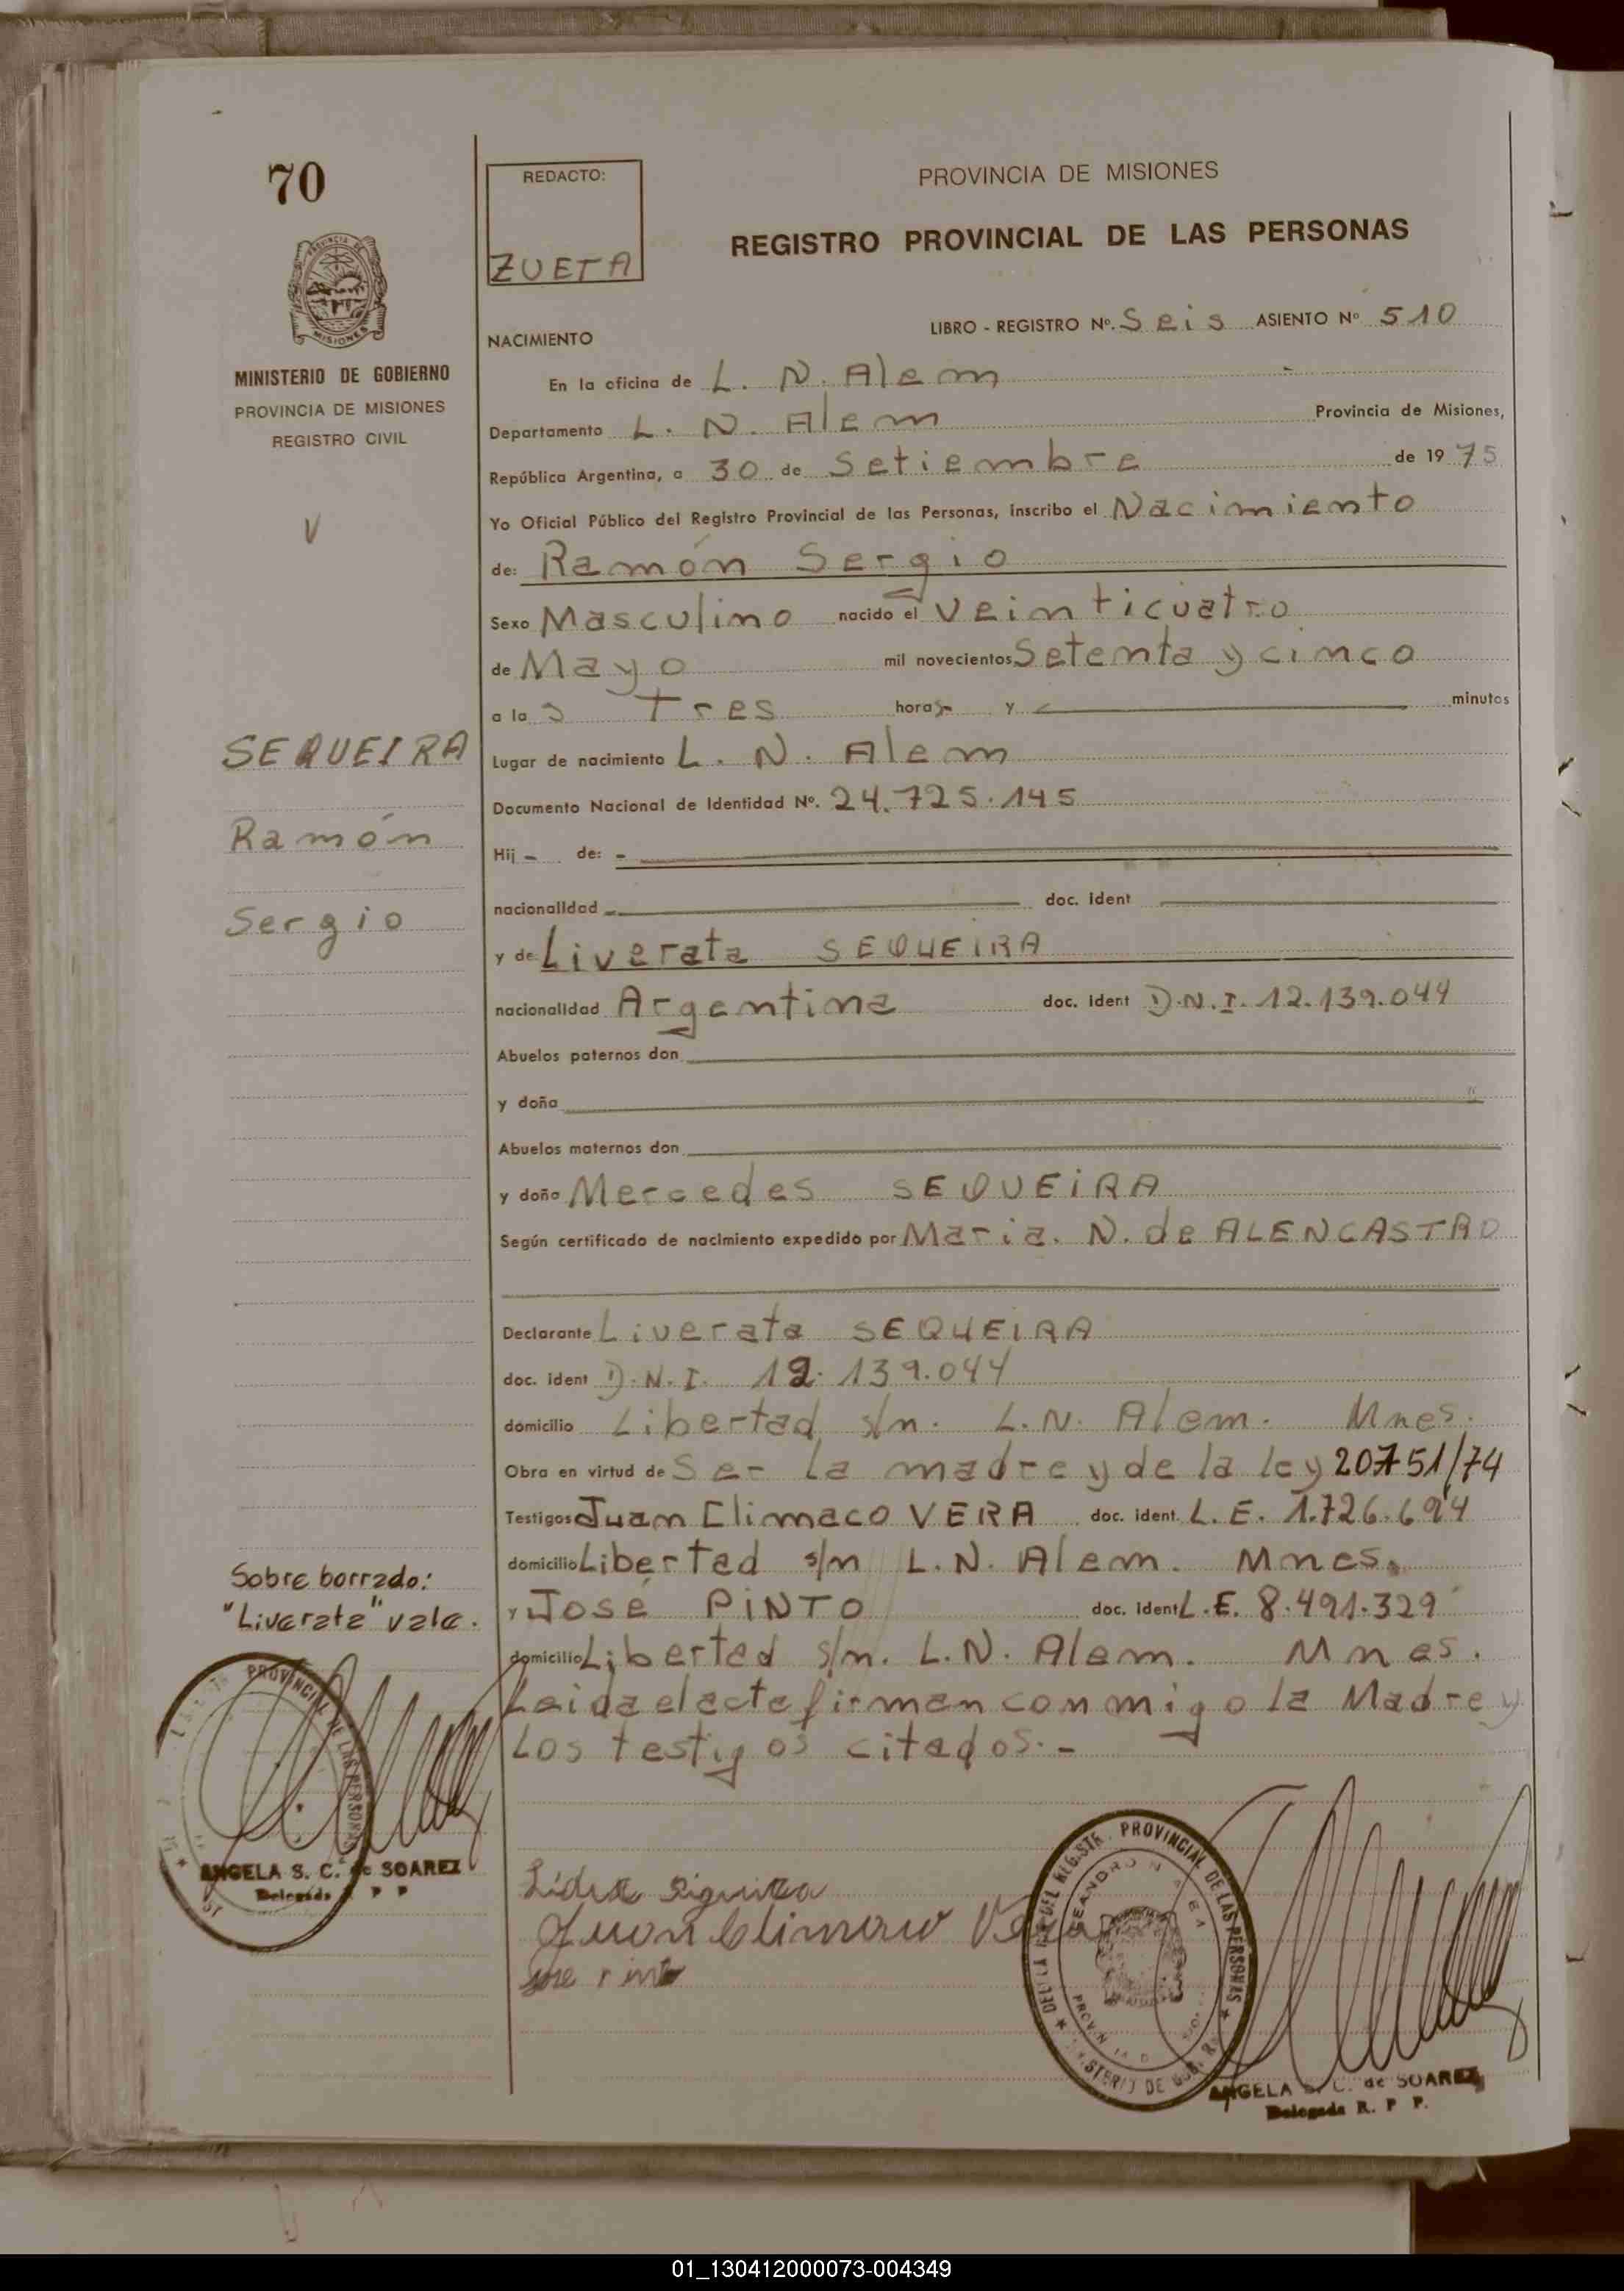 70
REDACTO:
ZUETA
PROVINCIA DE MISIONES
REGISTRO PROVINCIAL DE LAS PERSONAS
PROVINCIA DE
MISIONES
MINISTERIO DE GOBIERNO
PROVINCIA DE MISIONES
REGISTRO CIVIL
V
LIBRO - REGISTRO Nº. Seis ASIENTO Nº 510
NACIMIENTO
En la oficina de L. N. Alem
Departamento L. N. Alem Provincia de Misiones,
República Argentina, a 30 de Setiembre de 1975
Yo Oficial Público del Registro Provincial de las Personas, inscribo el Nacimiento
de: Ramón Sergio
Sexo Masculino nacido el Veinticuatro
de Mayo mil novecientos Setenta y cinco
a las Tres horas y minutos
Lugar de nacimiento L. N. Alem
Documento Nacional de Identidad Nº. 24.725.145
Hij - de: -
nacionalidad doc. ident
y de Liverata SEQUEIRA
nacionalidad Argentina doc. ident D.N.I. 12.139.044
Abuelos paternos don
y doña
Abuelos maternos don
y doña Mercedes SEQUEIRA
Según certificado de nacimiento expedido por Maria. N. de ALENCASTRO
Declarante Liverata SEQUEIRA
doc. ident D.N.I. 12.139.044
domicilio Libertad s/n. L.N. Alem. Mnes.
Obra en virtud de Ser la madre y de la ley 20751/74
Testigos Juan Climaco VERA doc. ident. L.E. 1.726.694
domicilio Libertad s/n L.N. Alem. Mnes.
y José PINTO doc. ident L.E. 8.491.329
domicilio Libertad s/n. L.N. Alem. Mnes.
Leida el acta firman conmigo la Madre y
los testigos citados.-
SEQUEIRA
Ramón
Sergio
Sobre borrado:
"Liverata" vale.
PROVINCIAL DE LAS PERSONAS
ANGELA S. C. de SOAREZ
Delegada R. P P
Juan Climaco Vera
PROVINCIAL DE LAS PERSONAS
ANGELA S. C. de SOAREZ
Delegada R. P P.
01_130412000073-004349